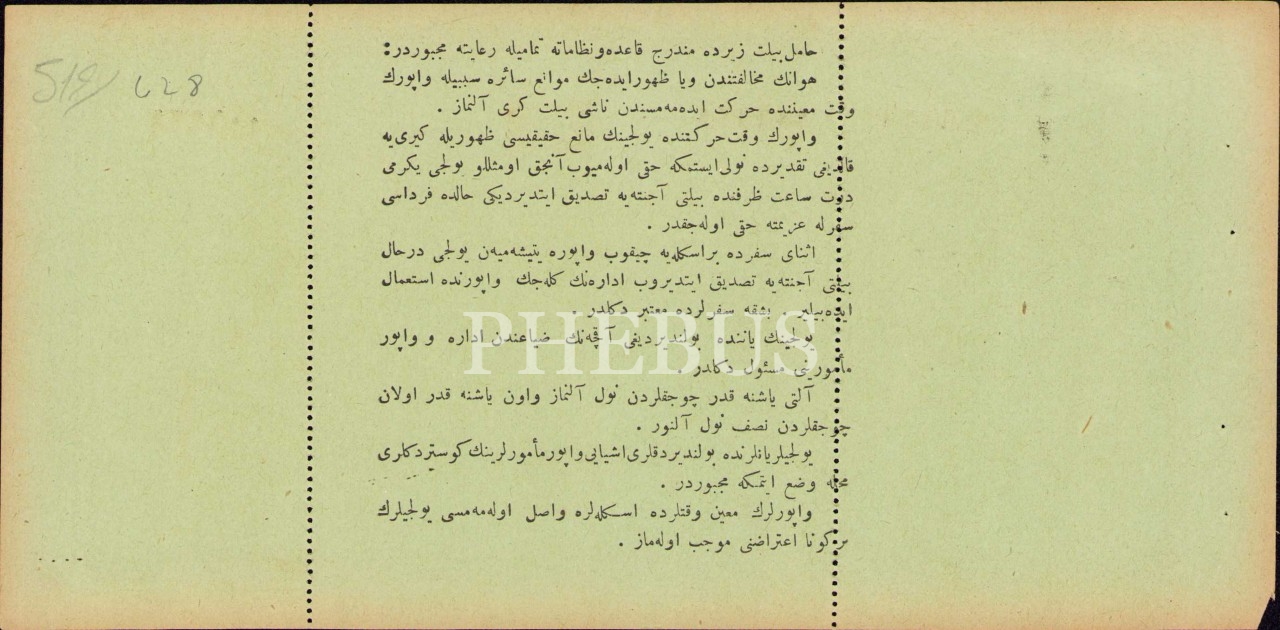 519/ 628
حامل بيلت زيرده مندرج قاعده ونظاماته تماميله رعايته مجبوردر:
هوانك مخالفتندن ويا ظهور ايده جك موانع سائره سببيله واپورك
وقت معيننده حركت ايده مه مسندن ناشى بيلت كرى آلنماز .
واپورك وقت حركتنده يولجينك مانع حقيقيسى ظهوريله كيرى يه
قالديغى تقديرده نولى ايستمكه حقى اوله ميوب آنجق اومثللو يولجى يكرمى
درت ساعت ظرفنده بيلتى آجنته يه تصديق ايتديرديكى حالده فرداسى
سفرله عزيمته حقى اوله جقدر .
اثناى سفرده براسكله يه چيقوب واپوره يتيشه ميه ن يولجى درحال
بيلتى آجنته يه تصديق ايتديروب اداره نك كله جك واپورنده استعمال
ايده بيلير . بشقه سفرلرده معتبر دكلدر
يولجينك ياننده بولنديرديغى آقچه نك ضياعندن اداره و واپور
مأمورينى مسئول دكلدر .
آلتى ياشنه قدر چوجقلردن نول آلنماز واون ياشنه قدر اولان
چوجقلردن نصف نول آلنور .
يولجيلر يانلرنده بولنديردقلرى اشيايى واپور مأمورلرينك كوستردكلرى
محله وضع ايتمكه مجبوردر .
واپورلرك معين وقتلرده اسكله لره واصل اوله مه مسى يولجيلرك
بركونا اعتراضنى موجب اوله ماز .
PHEBUS